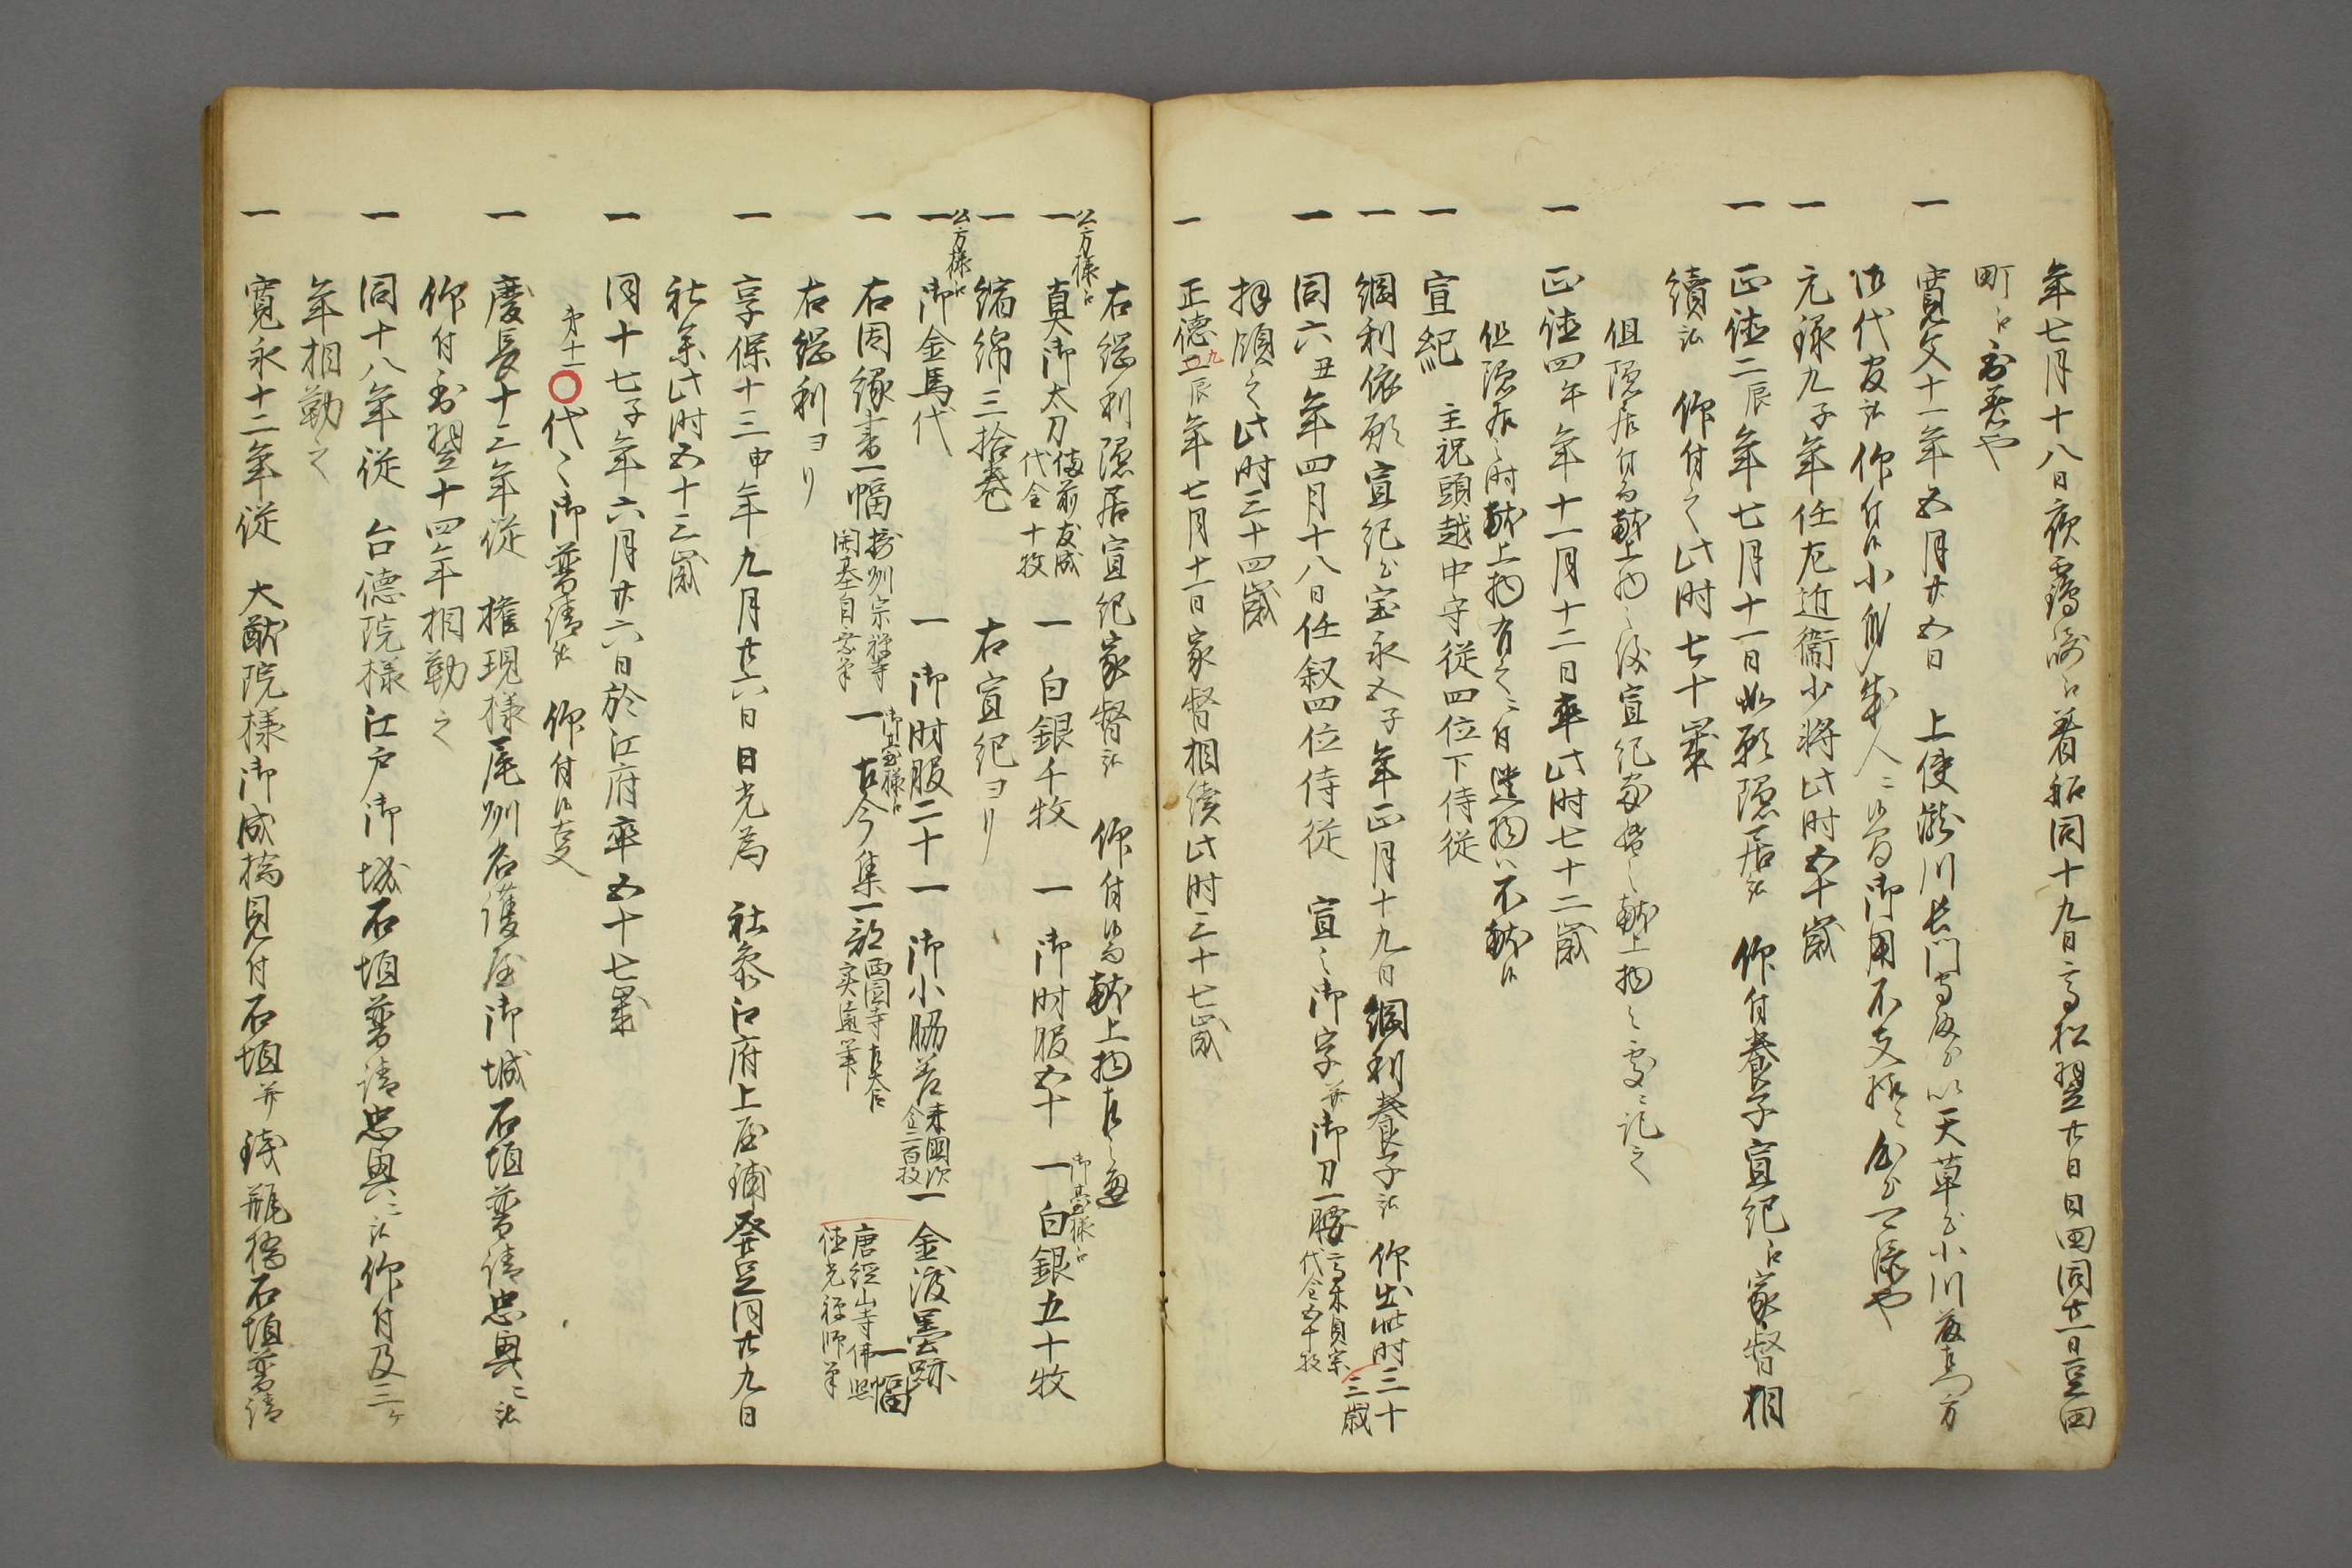 年七月十八日夜鶴崎江着船同十九日高松翌廿日日田同廿一日豆田
町江引越也
一 寛文十一年五月廿五日 上使瀧川長門守殿ゟ以天草ゟ小川藤左衛門方
元禄九子年任左近衞少将此时五十歳
一 正徳二辰年七月十一日如願隠居被 仰付養子宣紀江家督相
續被 仰付之此时七十歳
但隠居付而献上物之後宣紀家督之献上物之處ニ記之
一 正徳四午年十一月十二日卒此时七十二歳
但隠居之时献上物有之ニ付遺物ハ不献候
一 宣紀 主税頭越中守従四位下侍従
一 綱利依願宣紀ゟ宝永五子年正月十九日綱利養子被 仰出此时三十
三歳
一 同六丑年四月十八日任叙四位侍従 宣之御字并御刀一腰
高木貞宗
代金五十枚
拝領之此时三十四歳
一 正徳二辰年七月十一日家督相續此时三十七歳
右綱利隠居宣紀家督被 仰付候而献上物左之通
公方様江
一 真御太刀
備前友成
代金十枚
一 白銀千枚
一 御时服五十
御臺様江
一 白銀五十枚
一 縮綿三拾巻
右宣紀ヨリ
公方様江
一 御金馬代
一 御时服二十
一 御小脇差
来國次
金二百枚
一 金渡墨跡
一幅
唐径山寺佛照
徳光禅師筆
一 右因縁書一幅
摂州宗禅寺
開基自等筆
御臺様江
一 古今集一部
西園寺太政大臣
実遠筆
右綱利ヨリ
一 享保十三申年九月廿六日日光為 社参江府上屋鋪発足同廿九日
社参此时五十三歳
一 同十七子年六月廿六日於江府卒五十七歳
第十一
〇代々御普請被 仰付候事
一 慶長十三年従 権現様尾州名護屋御城石垣普請忠興ニ被
仰付到翌十四年相勤之
一 同十八年従 台徳院様江戸御城石垣普請忠興ニ被仰付及三ヶ
年相勤之
一 寛永十二年従 大猷院様御成橋見付石垣并銭瓶橋石垣普請